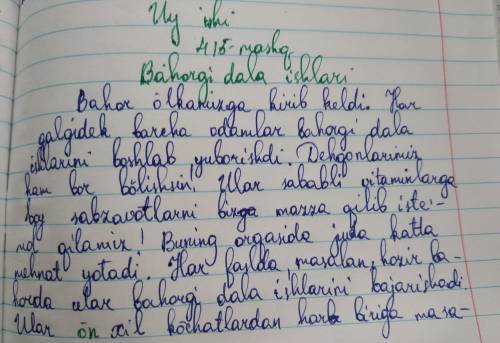 Uy ishi
415-mashq.
Bahorgi dala ishlari
Bahor ölkamizga kirib keldi. Har
galgidek barcha odamlar bahorgi dala
ishlarini boshlab yuborishdi. Dehqonlarimiz
ham bor bölishsin! Ular sababli vitaminlarga
boy sabzavotlarni bizga mazza qilib iste'-
mol qilamiz! Buning orqasida juda katta
mehnat yotadi. Har faslda, masalan, hozir ba-
horda ular bahorgi dala ishlarini bajarishadi.
Ular ön xil köchatlardan har biriga masa-